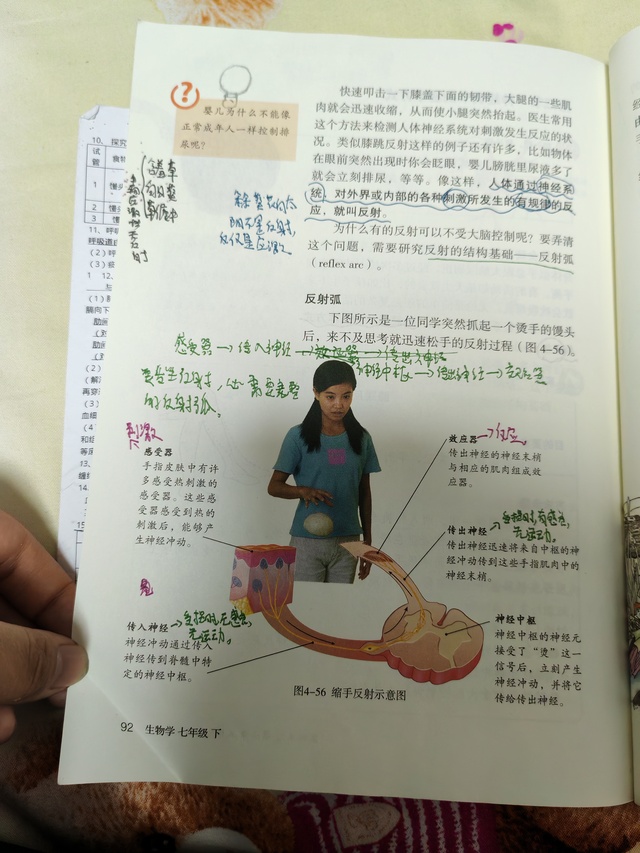 婴儿为什么不能像
正常成年人一样控制排
尿呢?
快速叩击一下膝盖下面的韧带，大腿的一些肌
肉就会迅速收缩，从而使小腿突然抬起。医生常用
这个方法来检测人体神经系统对刺激发生反应的状
况。类似膝跳反射这样的例子还有许多，比如物体
在眼前突然出现时你会眨眼，婴儿膀胱里尿液多了
就会立刻排尿，等等。像这样，人体通过神经系
统，对外界或内部的各种刺激所发生的有规律的反
应，就叫反射。
为什么有的反射可以不受大脑控制呢？要弄清
这个问题，需要研究反射的结构基础——反射弧
(reflex arc)。
反射弧
下图所示是一位同学突然抓起一个烫手的馒头
后，来不及思考就迅速松手的反射过程(图4-56)。
感受器→传入神经→效应器→传出神经
神经中枢→传出神经→效应器
要产生反射，必需要完整
的反射弧。
刺激
感受器
手指皮肤中有许
多感受热刺激的
感受器。这些感
受器感受到热的
刺激后，能够产
生神经冲动。
效应器→反应。
传出神经的神经末梢
与相应的肌肉组成效
应器。
传出神经→
受损时，有感觉，
无运动。
传出神经迅速将来自中枢的神
经冲动传到这些手指肌肉中的
神经末梢。
传入神经→受损时，无感觉，
无运动。
神经冲动通过传入
神经传到脊髓中特
定的神经中枢。
神经中枢
神经中枢的神经元
接受了“烫”这一
信号后，立刻产生
神经冲动，并将它
传给传出神经。
图4-56 缩手反射示意图
92 生物学 七年级 下